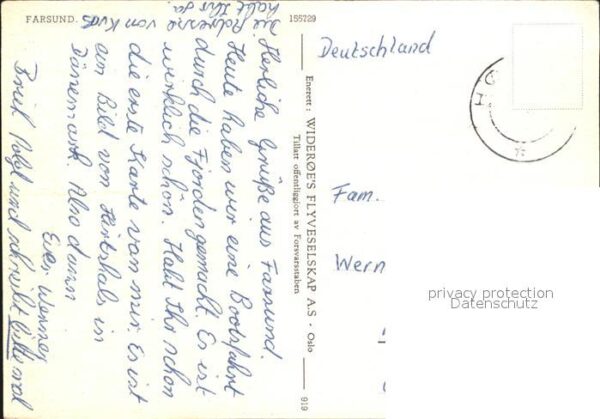 FARSUND.
155729
Die Adresse von Kvås
habt Ihr ja.
Herzliche Grüße aus Farsund.
Heute haben wir eine Bootsfahrt
durch die Fjorden gemacht. Es ist
wirklich schön. Habt Ihr schon
die erste Karte von mir. Es ist
ein Bild von Hirtshals in
Dänemark. Also dann
Euer Werner
Brief folgt und schreibt bitte mal
Enerett: WIDERØE'S FLYVESELSKAP A.S - Oslo
Tillatt offentliggjort av Forsvarsstaben
919
Deutschland
Fam.
Wern
privacy protection
Datenschutz